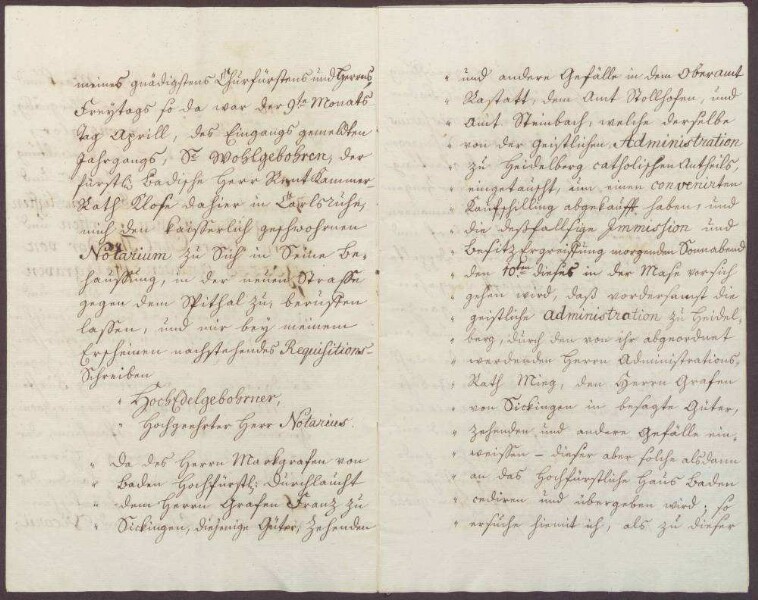 meines gnädigstens Churfürstens und Herrns
Freytags so da war der 9te Monats
Tag Aprill, des Eingangs gemeldten
Jahrgangs, Sr Wohlgebohren, der
fürstl: Badische Herr Rent Cammer-
Rath Close dahier in Carlsruhe,
mich den kaisserlich geschwohrnen
Notarium zu Sich in Seine Be-
haussung, in der neuen Strasse
gegen dem Spithal zu, beruffen
lassen, und mir bey meinem
Erscheinen nachstehendes Requisitions-
Schreiben
" HochEdelgebohrner,
" Hochgeehrter Herr Notarius.
" Da des Herrn Markgrafen von
" Baden Hochfürstl: Durchlaucht
" dem Herrn Grafen Franz zu
" Sickingen, diejenige Güter, Zehenden
" und andere Gefälle in dem Oberamt
" Rastatt, dem Amt Stollhofen, und
" Amt Steinbach, welche derselbe
" von der Geistlichen Administration
" zu Heidelberg catholischen Antheils,
" eingetauscht, um einen convenirten
" Kaufschilling abgekaufft haben, und
" die dessfallsige Immission und
" Besitz Ergreiffung morgenden Sonnabend
" den 10ten dieses in der Mase vorsich
" gehen wird, dass vordersamst die
" geistliche administration zu Heidel-
" berg, durch den von ihr abgeordnet
" werdenden Herrn Administrations-
" Rath Mieg, den Herrn Grafen
" von Sickingen in besagte Güter,
" Zehenden und andere Gefälle ein-
" weissen – dieser aber solche alsdann
" an das Hochfürstliche Haus Baden
" cediren und übergeben wird; so
" ersuche hiemit ich, als zu dieser